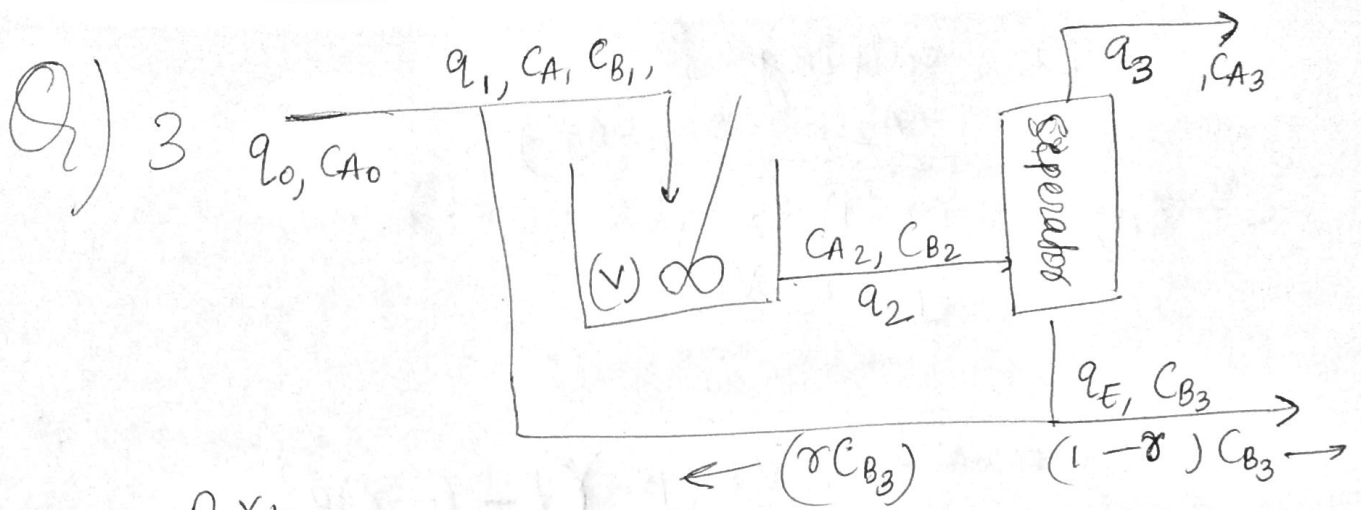 Q) 3
q₀, CA₀
q₁, CA₁ CB₁,
(V)
CA₂, CB₂
q₂
Seperator
q₃ , CA₃
qE, CB₃
← (γCB₃)
(1 - γ) CB₃ →